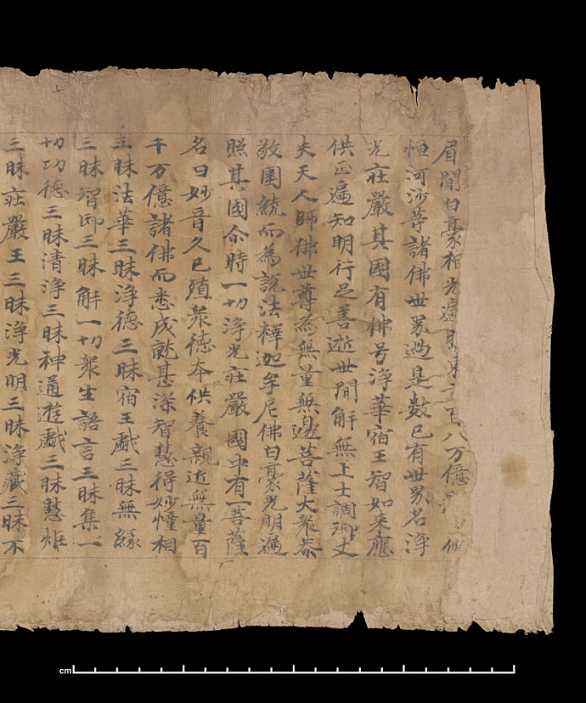 眉間白毫相光遍 八万億
恒河沙等諸佛世界過是數已有世界名淨
光莊嚴其國有佛号淨華宿王智如來應
供正遍知明行足善逝世間解無上士調御丈
夫天人師佛世尊為無量無邊菩薩大衆恭
敬圍繞而為說法釋迦牟尼佛白毫光明遍
照其國尒時一切淨光莊嚴國中有一菩薩
名曰妙音久已殖衆德本供養親近無量百
千万億諸佛而悉成就甚深智慧得妙幢相
三昧法華三昧淨德三昧宿王戲三昧無緣
三昧智印三昧解一切衆生語言三昧集一
切功德三昧清淨三昧神通遊戲三昧慧炬
三昧莊嚴王三昧淨光明三昧淨藏三昧不
cm